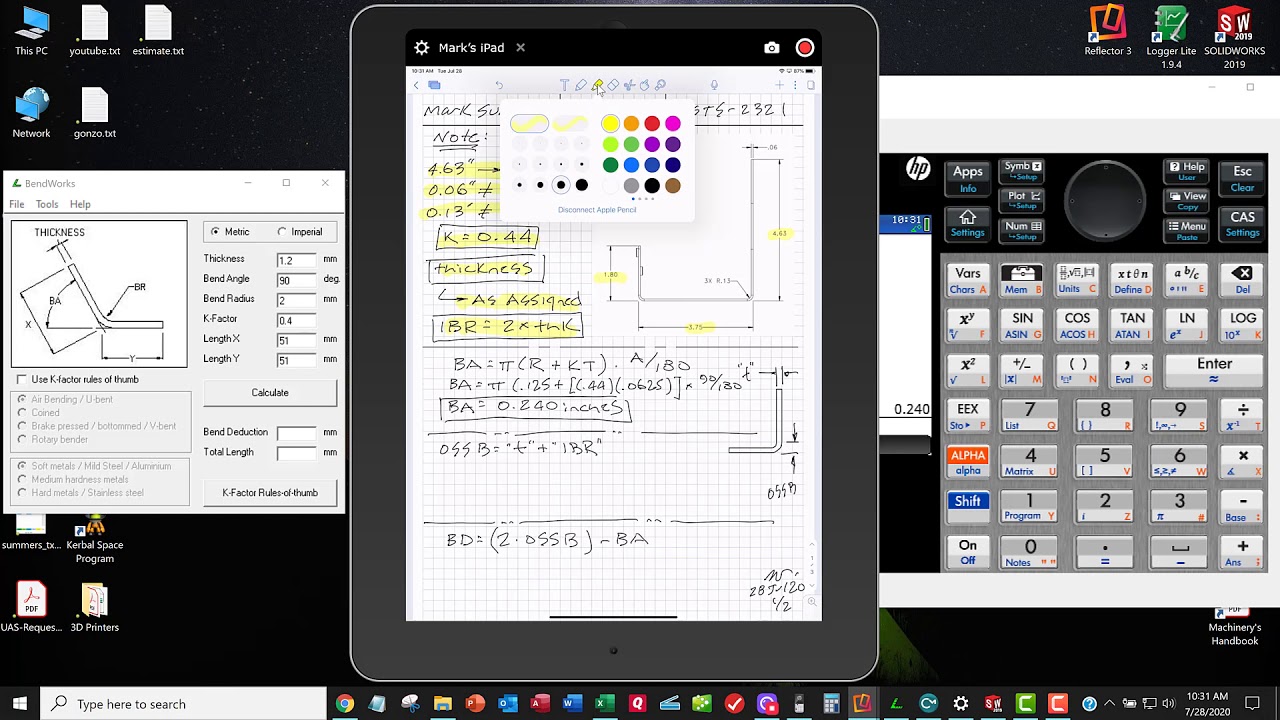 This PC
youtube.txt
estimate.txt
Network
gonzo.txt
BendWorks
File Tools Help
THICKNESS
BR
BA
X
Y
Metric
Imperial
Thickness 1.2 mm
Bend Angle 90 deg.
Bend Radius 2 mm
K-Factor 0.4
Length X 51 mm
Length Y 51 mm
Use K-factor rules of thumb
Air Bending / U-bent
Coined
Brake pressed / bottommed / V-bent
Rotary bender
Soft metals / Mild Steel / Aluminium
Medium hardness metals
Hard metals / Stainless steel
Calculate
Bend Deduction mm
Total Length mm
K-Factor Rules-of-thumb
summers_tx...
Kerbal Space
Program
UAS-Reques...
3D Printers
Mark's iPad
10:31 AM Tue Jul 28
87%
Mark Su
TS-2321
Note:
4.63"
0.06"
0.13"
K = 0.44
thickness
As Assigned
IBR = 2 x thk
Disconnect Apple Pencil
.06
4.63
1.80
3X R.13
3.75
BA = π(R + KT) · A/180
BA = π(.125 + [(.44)(.0625)] x 90/180
BA = 0.240 inches
OSSB = "t" + "IBR"
"t"
OSSB
BD = (2·OSSB) - BA
28 Jul 20
1/2
1
3
Reflector 3
Logger Lite
1.9.4
SOLIDWORKS
2019
hp
10:31
0.240
Apps
Info
Symb
Setup
Help
User
Esc
Clear
Plot
Setup
View
Copy
Settings
Num
Setup
Menu
Paste
CAS
Settings
Vars
Chars A
Mem B
Units C
x t θ n
Define D
a b/c
E
Del
F
SIN
ASIN G
COS
ACOS H
TAN
ATAN I
LN
J
LOG
K
L
+/-
|x| M
( )
N
,
Eval O
Enter
≈
EEX
Sto P
7
List Q
8
{ } R
9
S
÷
x⁻¹ T
ALPHA
alpha
4
Matrix U
5
[ ] V
6
W
×
X
Shift
1
Program Y
2
i Z
3
π #
-
Base :
On
Off
0
Notes " "
.
=
+
Ans ;
Machinery's
Handbook
Type here to search
10:31 AM
7/28/2020